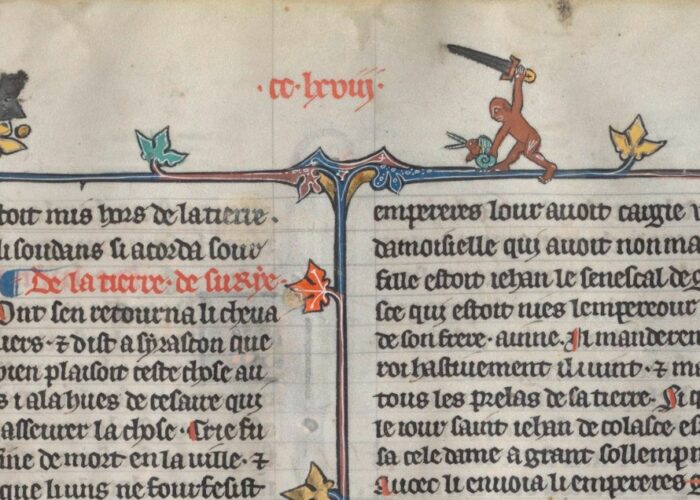 ·cc·lxviij·
stoit mis hors de la tierre.
li soudans si acorda sour
De la tierre de surye·
Dnt sen retourna li cheua
liers · ⁊ dist a syrascon que
bien plaisoit ceste chose au
s i ala hues de cesaire qui
asseurer la chose · Crie fu
ine de mort en la ville · ⁊
que li uns ne fourfesist
empereres lour auoit cargie
damoisielle qui auoit non ma
fille estoit iehan le senescal de
sce qui estoit nies lempereour
de son frere · ainne · Il manderent
roi hastiuement il i vint · ⁊ ma
tous les prelas de la tierre · Si
le iour saint iehan de colasce
sa cele dame a grant sollemp
Auoec li enuoia li empereres